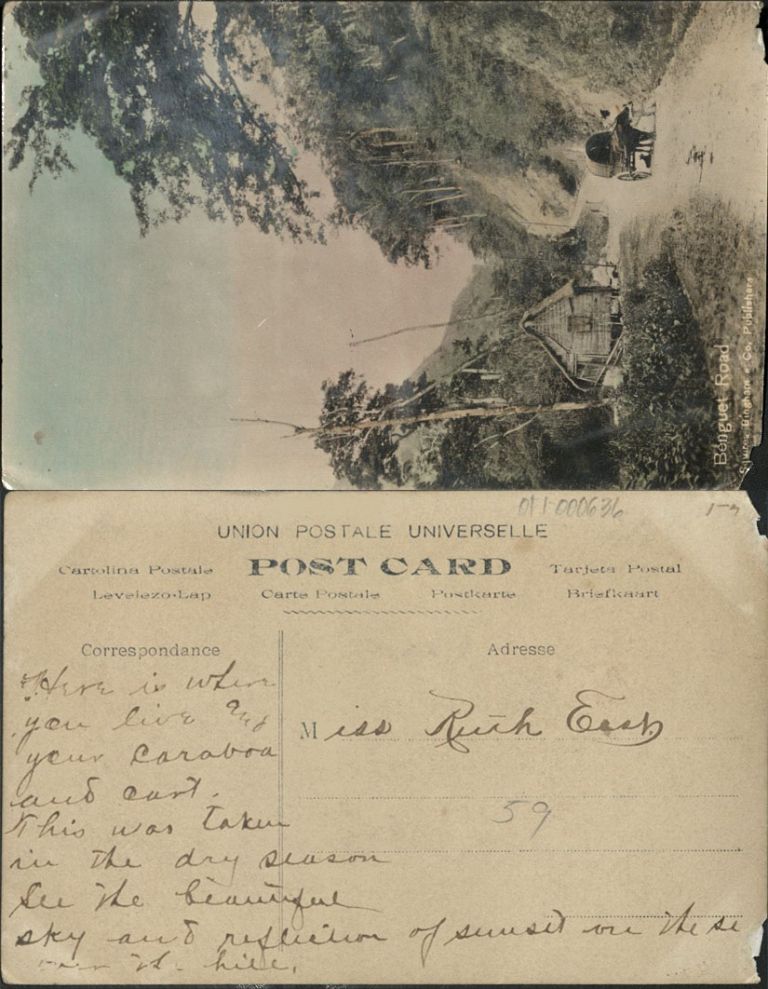 Benguet Road
Squires Bingham & Co. Publishers
011000636
UNION POSTALE UNIVERSELLE
Cartolina Postale POST CARD Tarjeta Postal
Levelezo-Lap Carte Postale Postkarte Briefkaart
Correspondance
Adresse
Here is where
you live
your Caraboa
and cart.
This was taken
in the dry season
See the beautiful
sky and reflection of sunset on the
the hill.
Miss Ruth East
59